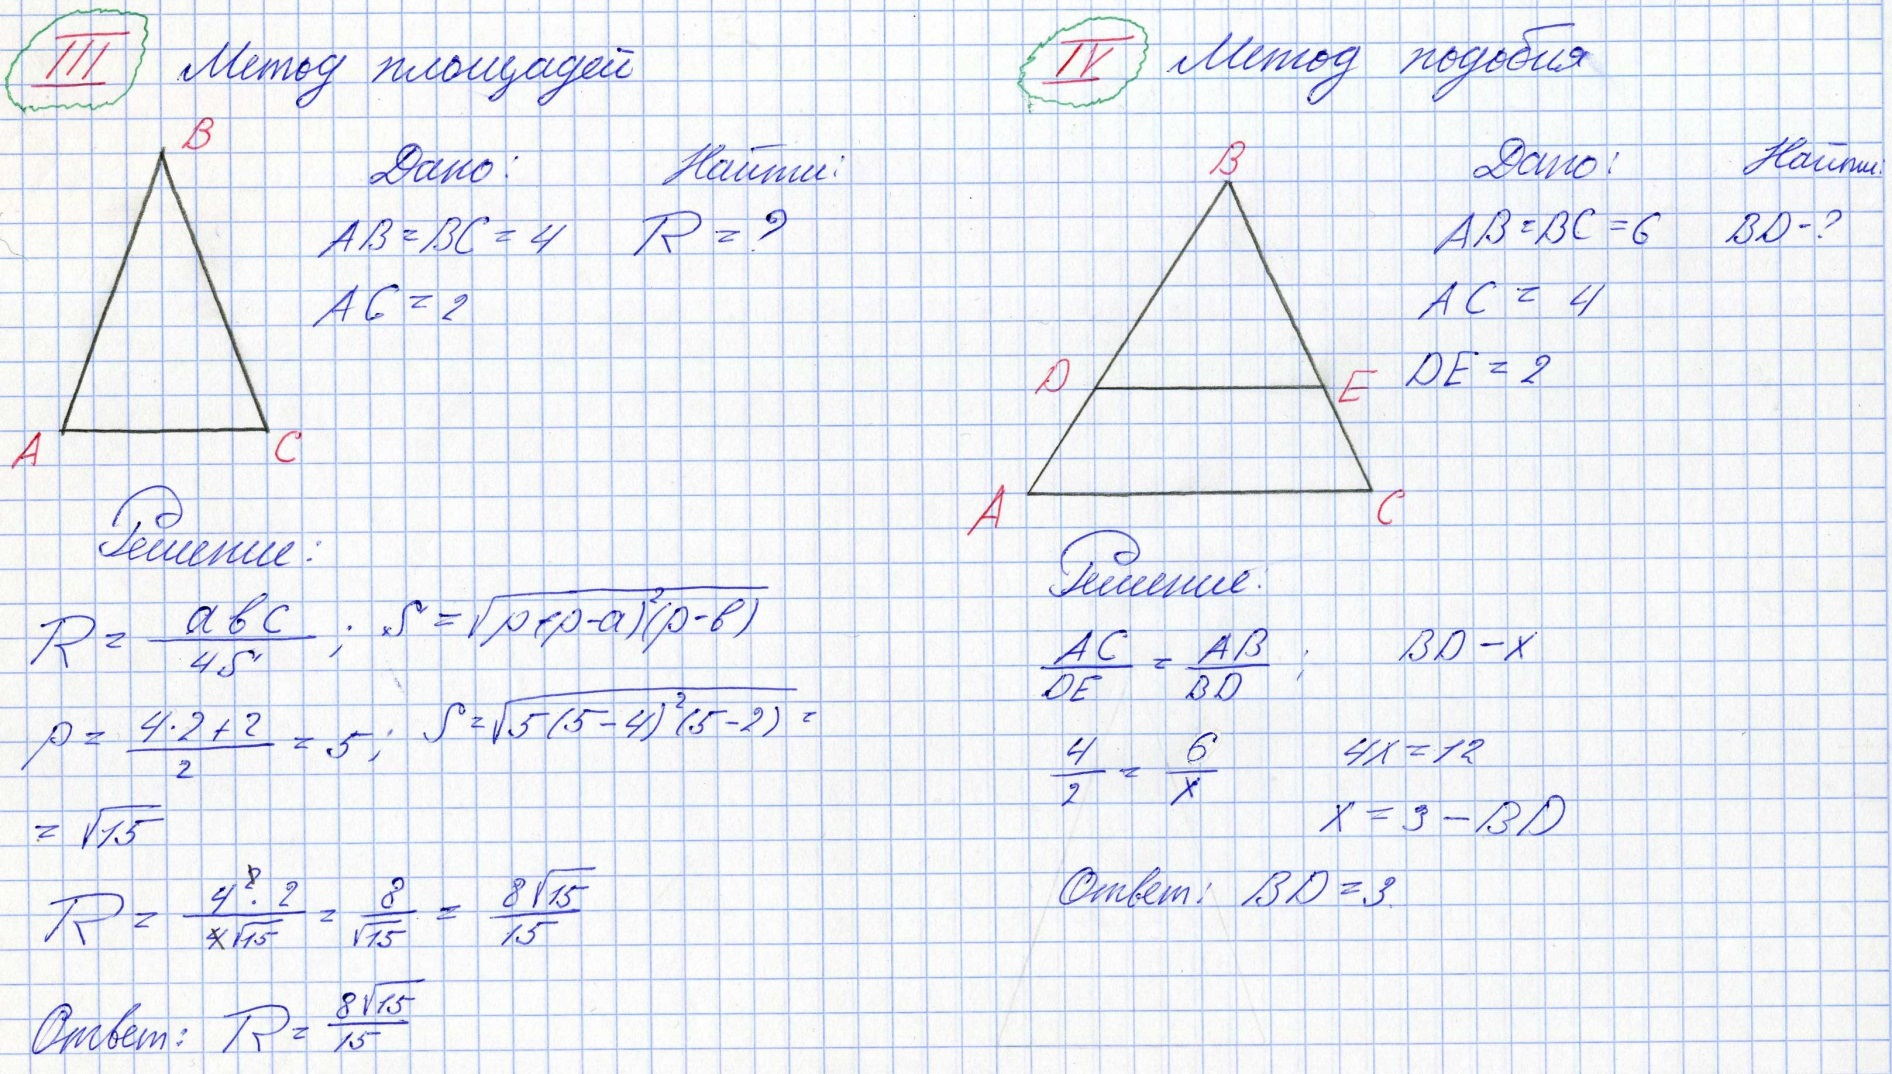 III Метод площадей
B
Дано: Найти:
AB=BC=4 R=?
AC=2
A C
Решение:
R = abc/4S ; S = √(p(p-a)²(p-b))
p = (4·2+2)/2 = 5; S=√(5(5-4)²(5-2)) =
= √15
R = (4²·2)/(4√15) = 8/√15 = 8√15/15
Ответ: R = 8√15/15
IV Метод подобия
B
Дано: Найти:
AB=BC=6 BD-?
AC = 4
D E DE = 2
A C
Решение:
AC/DE = AB/BD ; BD-x
4/2 = 6/x 4x=12
x = 3 - BD
Ответ: BD=3.